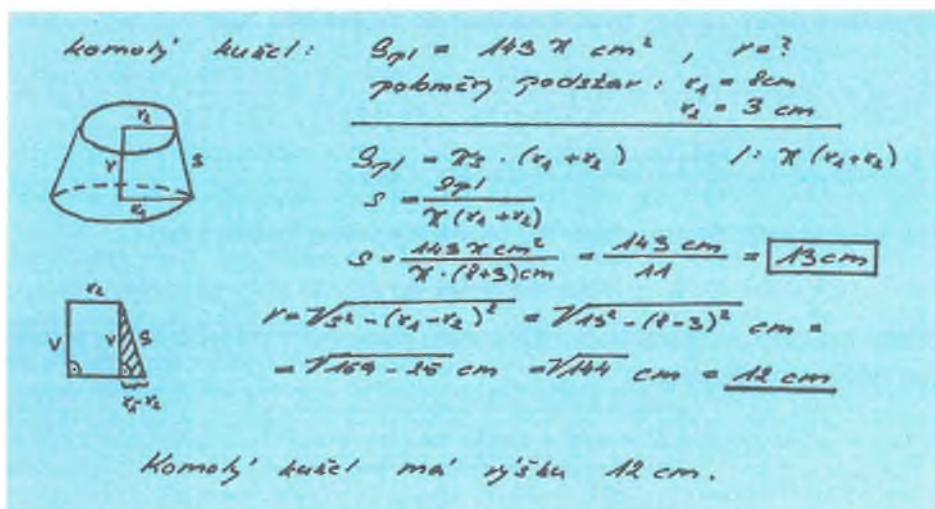 komolý kužel: Spl = 143 π cm² , v = ?
poloměry podstav: r₁ = 8 cm
r₂ = 3 cm
Spl = πs · (r₁ + r₂) /: π (r₁ + r₂)
s = Spl / π (r₁ + r₂)
s = 143 π cm² / π · (8+3) cm = 143 cm / 11 = 13 cm
r₂
v
s
r₁
v = √s² - (r₁ - r₂)² = √13² - (8-3)² cm =
= √169 - 25 cm = √144 cm = 12 cm
r₂
v
v
s
r₁-r₂
Komolý kužel má výšku 12 cm.